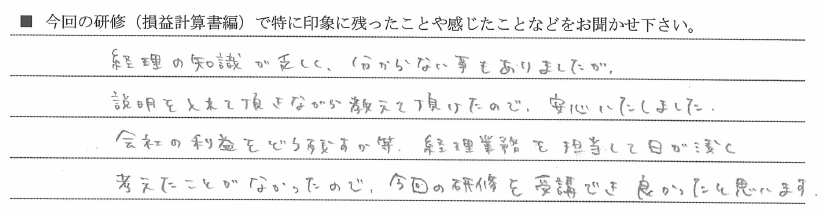 ■ 今回の研修（損益計算書編）で特に印象に残ったことや感じたことなどをお聞かせ下さい。
経理の知識が乏しく、分からない事もありましたが、
説明を入れて頂きながら教えて頂けたので、安心いたしました。
会社の利益をどう残すか等、経理業務を担当して日が浅く
考えたことがなかったので、今回の研修を受講でき良かったと思います。